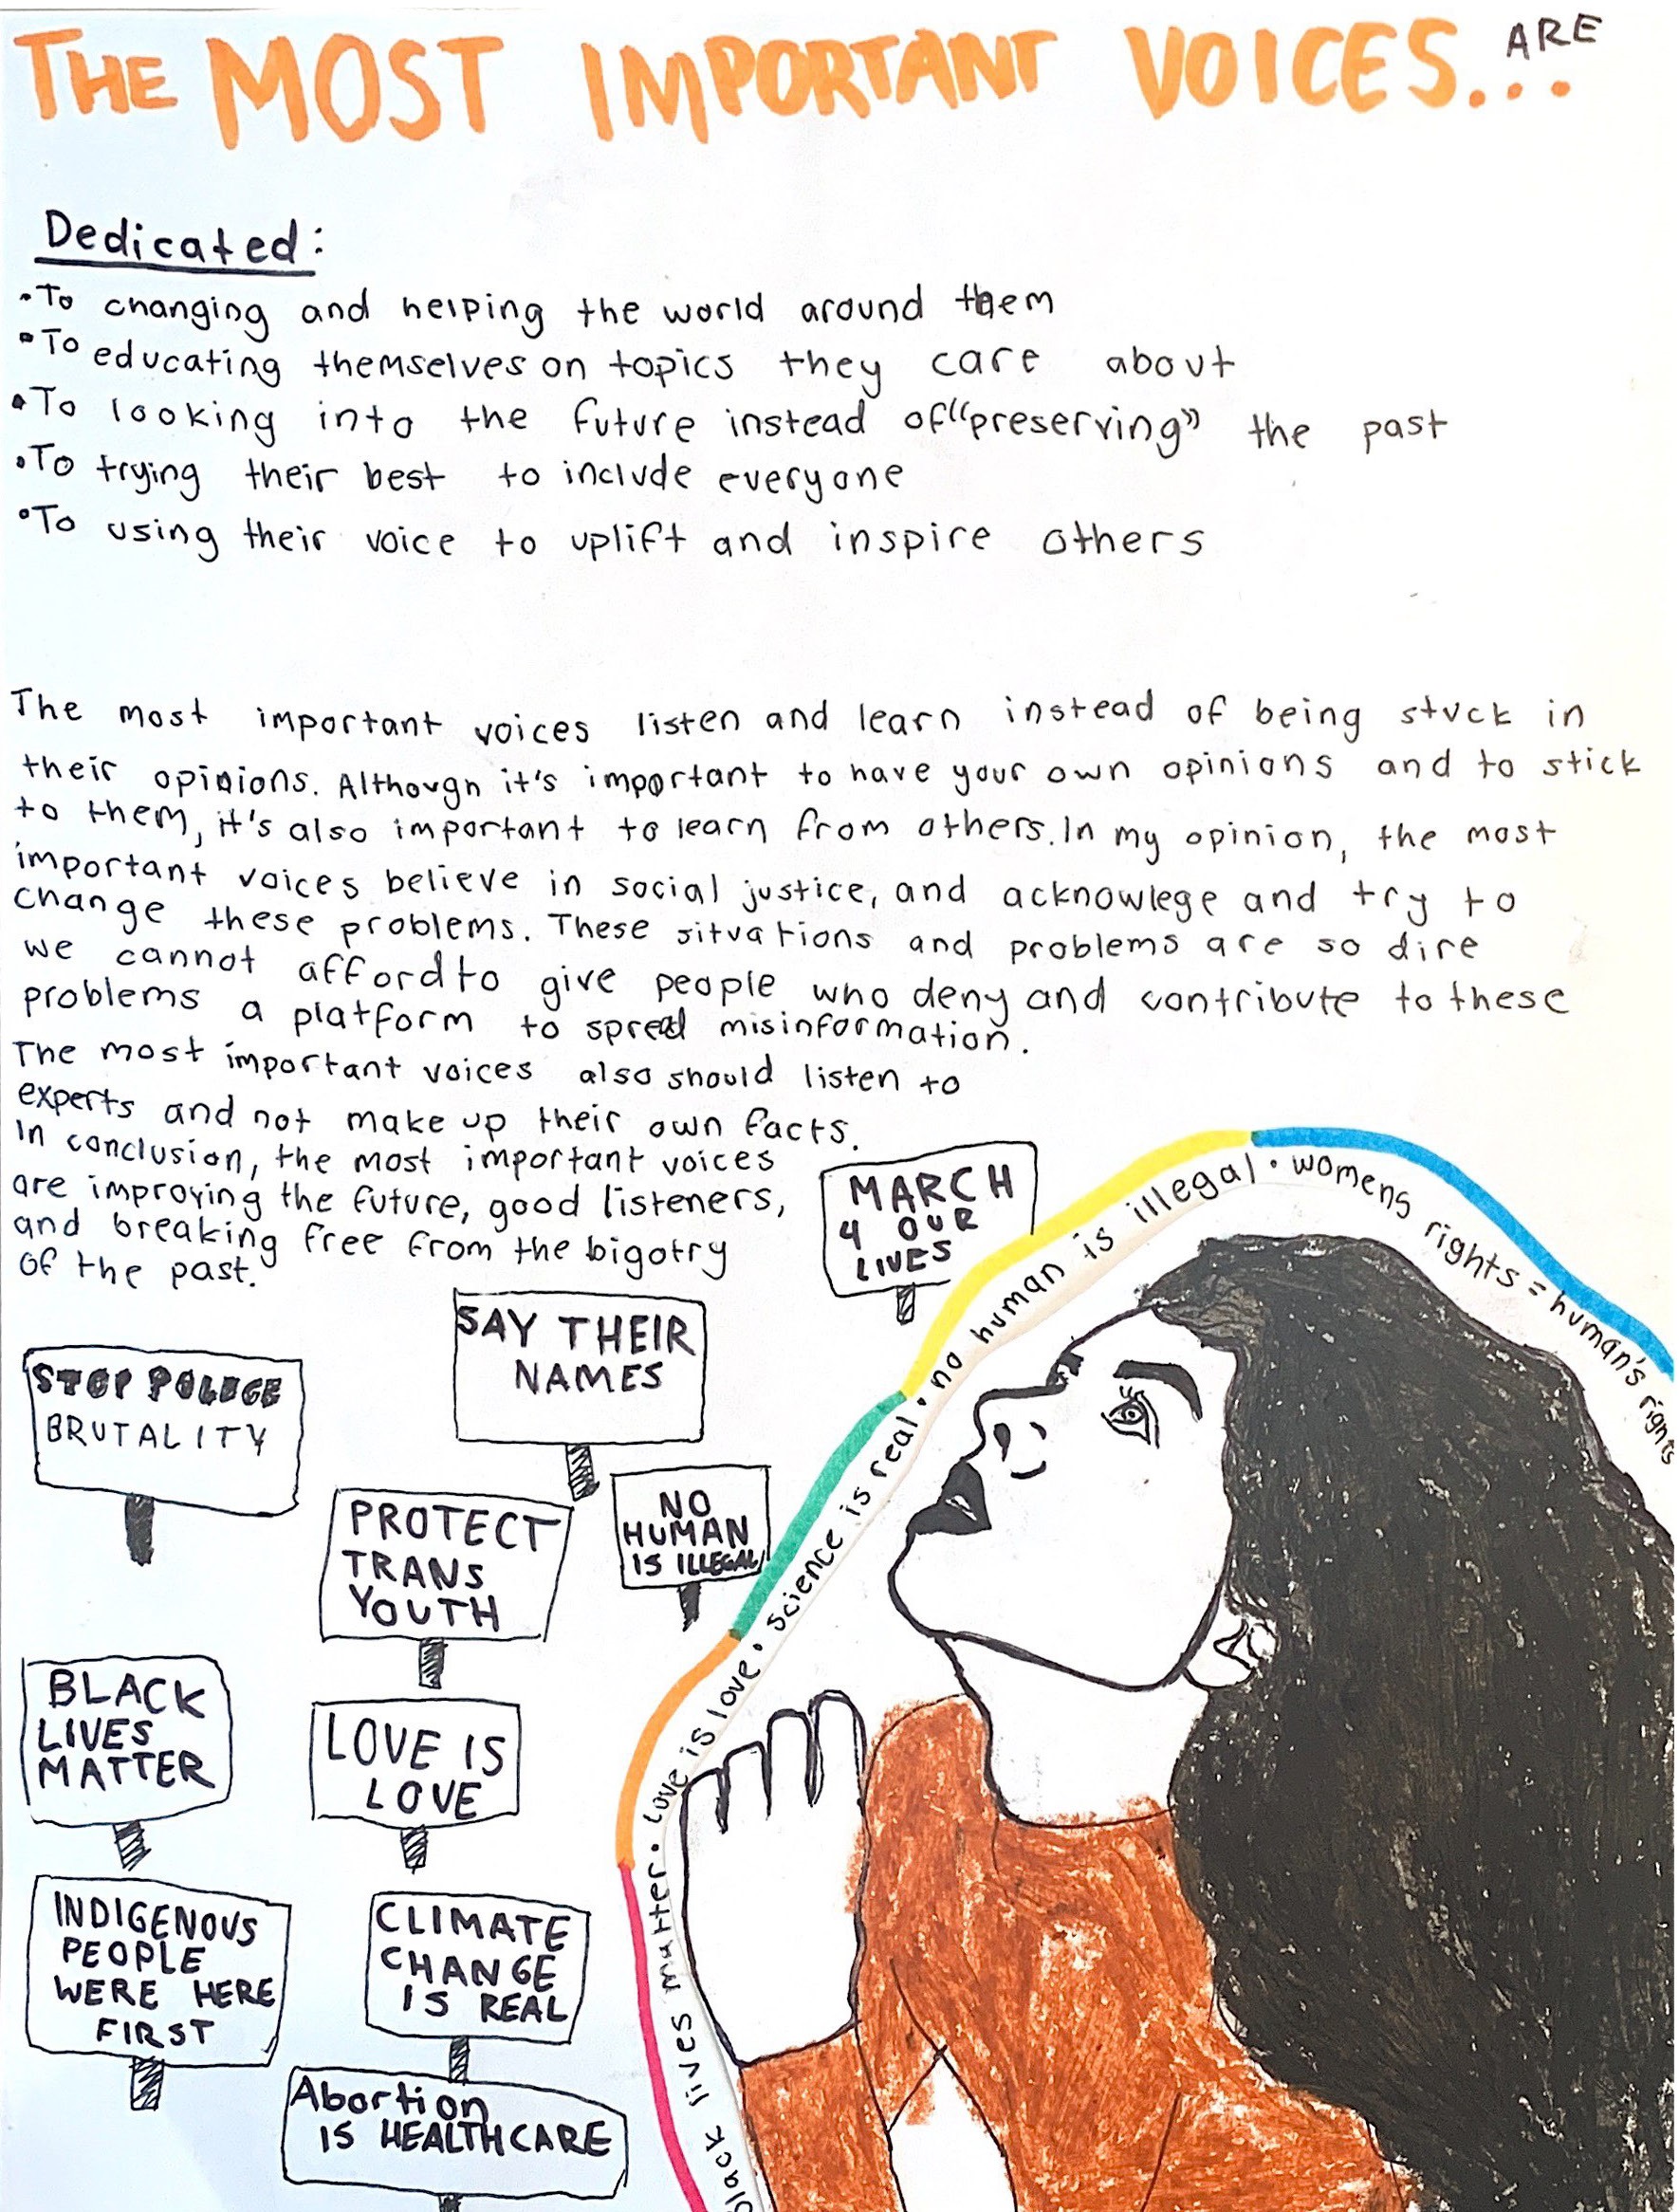 THE MOST IMPORTANT VOICES... ARE
Dedicated:
•To changing and helping the world around them
•To educating themselves on topics they care about
•To looking into the future instead of "preserving" the past
•To trying their best to include everyone
•To using their voice to uplift and inspire others
The most important voices listen and learn instead of being stuck in
their opinions. Although it's important to have your own opinions and to stick
to them, it's also important to learn from others. In my opinion, the most
important voices believe in social justice, and acknowlege and try to
change these problems. These situations and problems are so dire
we cannot afford to give people who deny and contribute to these
problems a platform to spread misinformation.
The most important voices also should listen to
experts and not make up their own facts.
In conclusion, the most important voices
are improving the future, good listeners,
and breaking free from the bigotry
of the past.
MARCH
4 OUR
LIVES
SAY THEIR
NAMES
STOP POLICE
BRUTALITY
PROTECT
TRANS
YOUTH
NO
HUMAN
IS ILLEGAL
BLACK
LIVES
MATTER
LOVE IS
LOVE
INDIGENOUS
PEOPLE
WERE HERE
FIRST
CLIMATE
CHANGE
IS REAL
Abortion
IS HEALTHCARE
black lives matter • love is love • science is real • no human is illegal • womens rights = human's rights